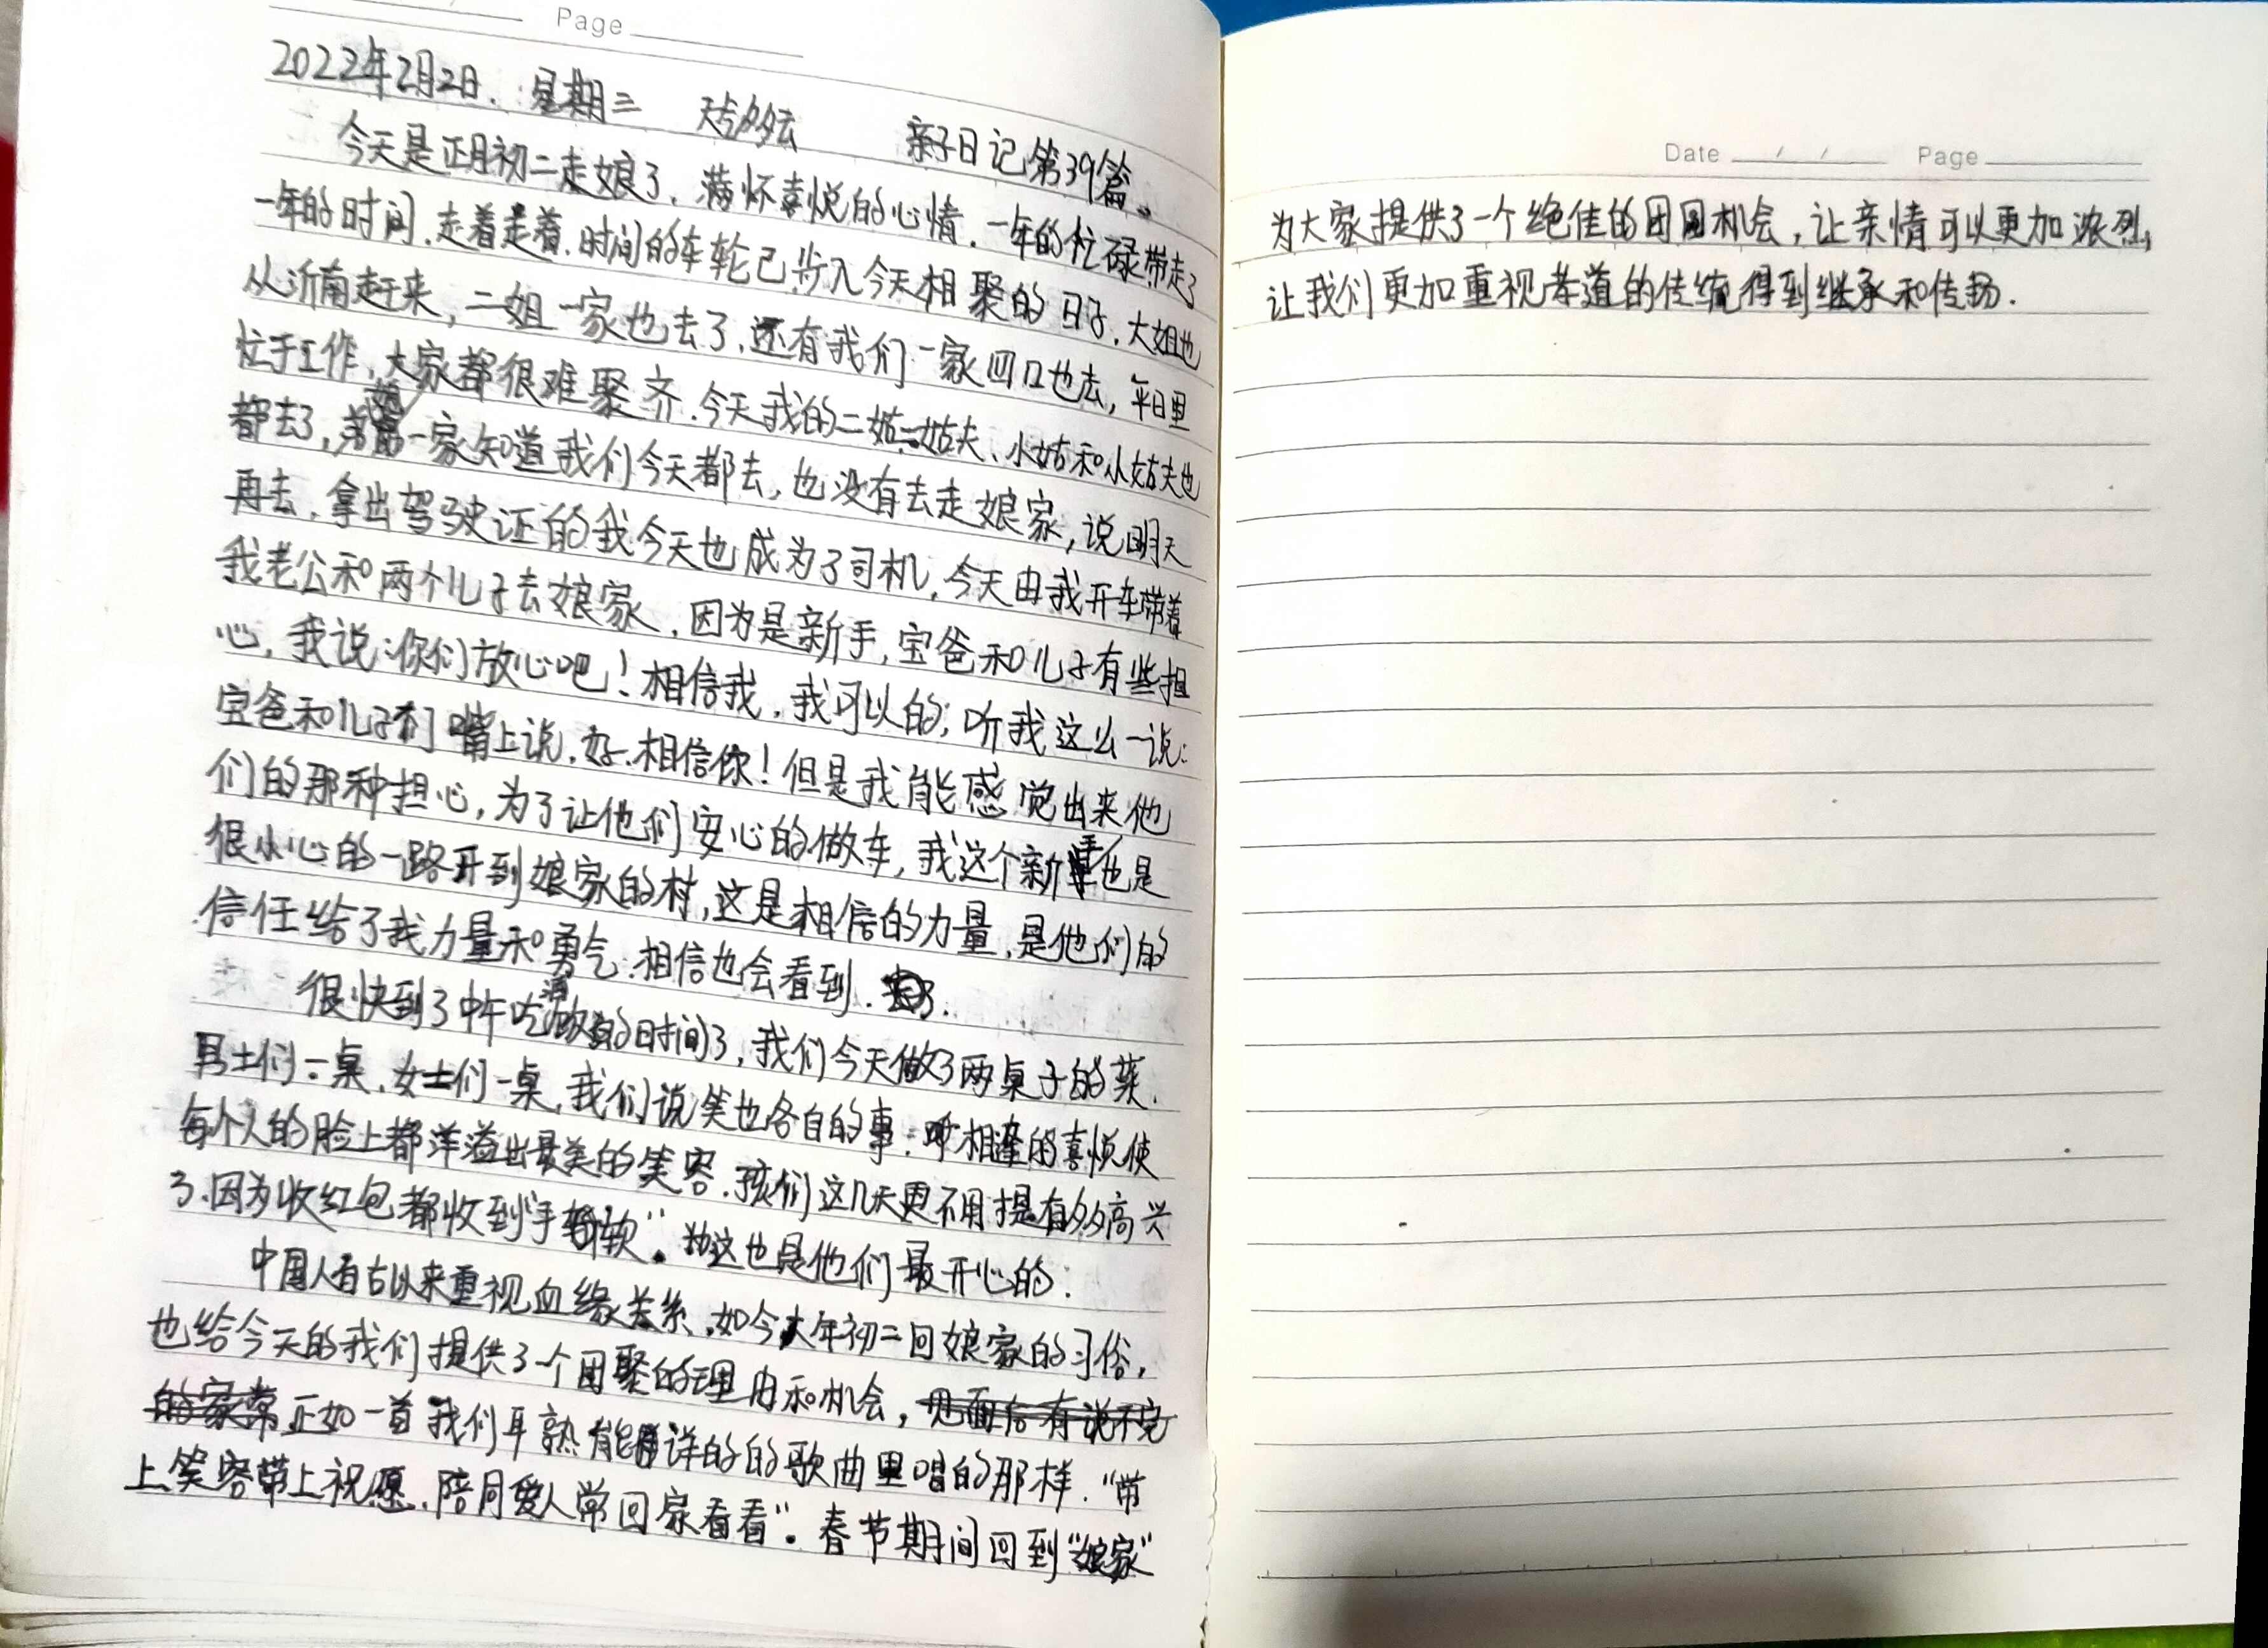 Page
2022年2月2日. 星期三 天气多云 亲子日记第39篇。
今天是正月初二走娘了,满怀喜悦的心情,一年的忙碌带走了
一年的时间,走着走着,时间的车轮已步入今天相聚的日子,大姐也
从沂南赶来,二姐一家也去了,还有我们一家四口也去,平日里
忙于工作,大家都很难聚齐.今天我的二姑二姑夫、小姑和小姑夫也
都去了,一家知道我们今天都去,也没有去走娘家,说明天
再去,拿出驾驶证的我今天也成为了司机,今天由我开车带着
我老公和两个儿子去娘家,因为是新手,宝爸和儿子有些担
心,我说:你们放心吧!相信我,我可以的;听我这么一说:
宝爸和儿子们嘴上说,好.相信你!但是我能感觉出来他
们的那种担心,为了让他们安心的做车,我这个新手也是
很小心的一路开到娘家的村,这是相信的力量,是他们的
信任给了我力量和勇气.相信也会看到.
很快到了中午吃酒饭的时间了,我们今天做了两桌子的菜.
男士们一桌,女士们一桌,我们说笑也各自的事.相逢的喜悦使
每个人的脸上都洋溢出最美的笑容.孩们这几天更不用提有多高兴
了.因为收红包都收到"手软"。这也是他们最开心的.
中国人自古以来重视血缘关系,如今大年初二回娘家的习俗,
也给今天的我们提供了一个团聚的理由和机会,见面后有说不完
的家常正如一首我们耳熟能详的的歌曲里唱的那样."带
上笑容带上祝愿,陪同爱人常回家看看"。春节期间回到"娘家"
Date / / Page
为大家提供了一个绝佳的团圆机会,让亲情可以更加浓烈,
让我们更加重视孝道的传统得到继承和传扬.